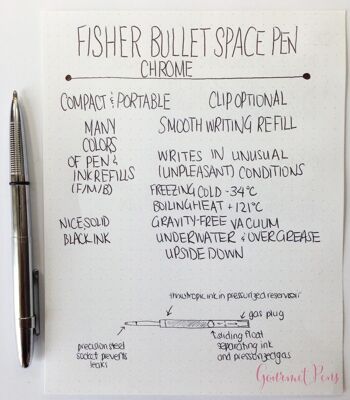 FISHER BULLET SPACE PEN
CHROME
COMPACT & PORTABLE
CLIP OPTIONAL
MANY
COLORS
OF PEN &
INK REFILLS
(F/M/B)
SMOOTH WRITING REFILL
WRITES IN UNUSUAL
(UNPLEASANT) CONDITIONS
FREEZING COLD -34°C
BOILING HEAT +121°C
NICE SOLID
BLACK INK
GRAVITY-FREE VACUUM
UNDERWATER & OVER GREASE
UPSIDE DOWN
thixotropic ink in pressurized reservoir
gas plug
precision steel
socket prevents
leaks
sliding float
separating ink
and pressurized gas
Gourmet Pens